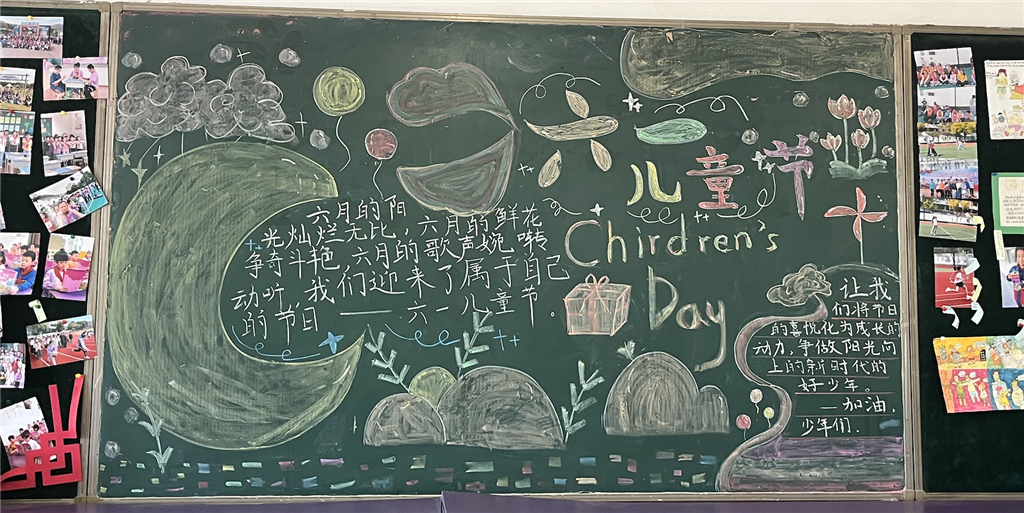 六一
儿童节
Chirdren's
Day
六月的阳
光灿烂无比，六月的鲜花
争奇斗艳，六月的歌声婉啭
动听，我们迎来了属于自己
的节日——六一儿童节。
让我
们将节日
的喜悦化为成长的
动力，争做阳光向
上的新时代的
好少年。
—加油，
少年们.